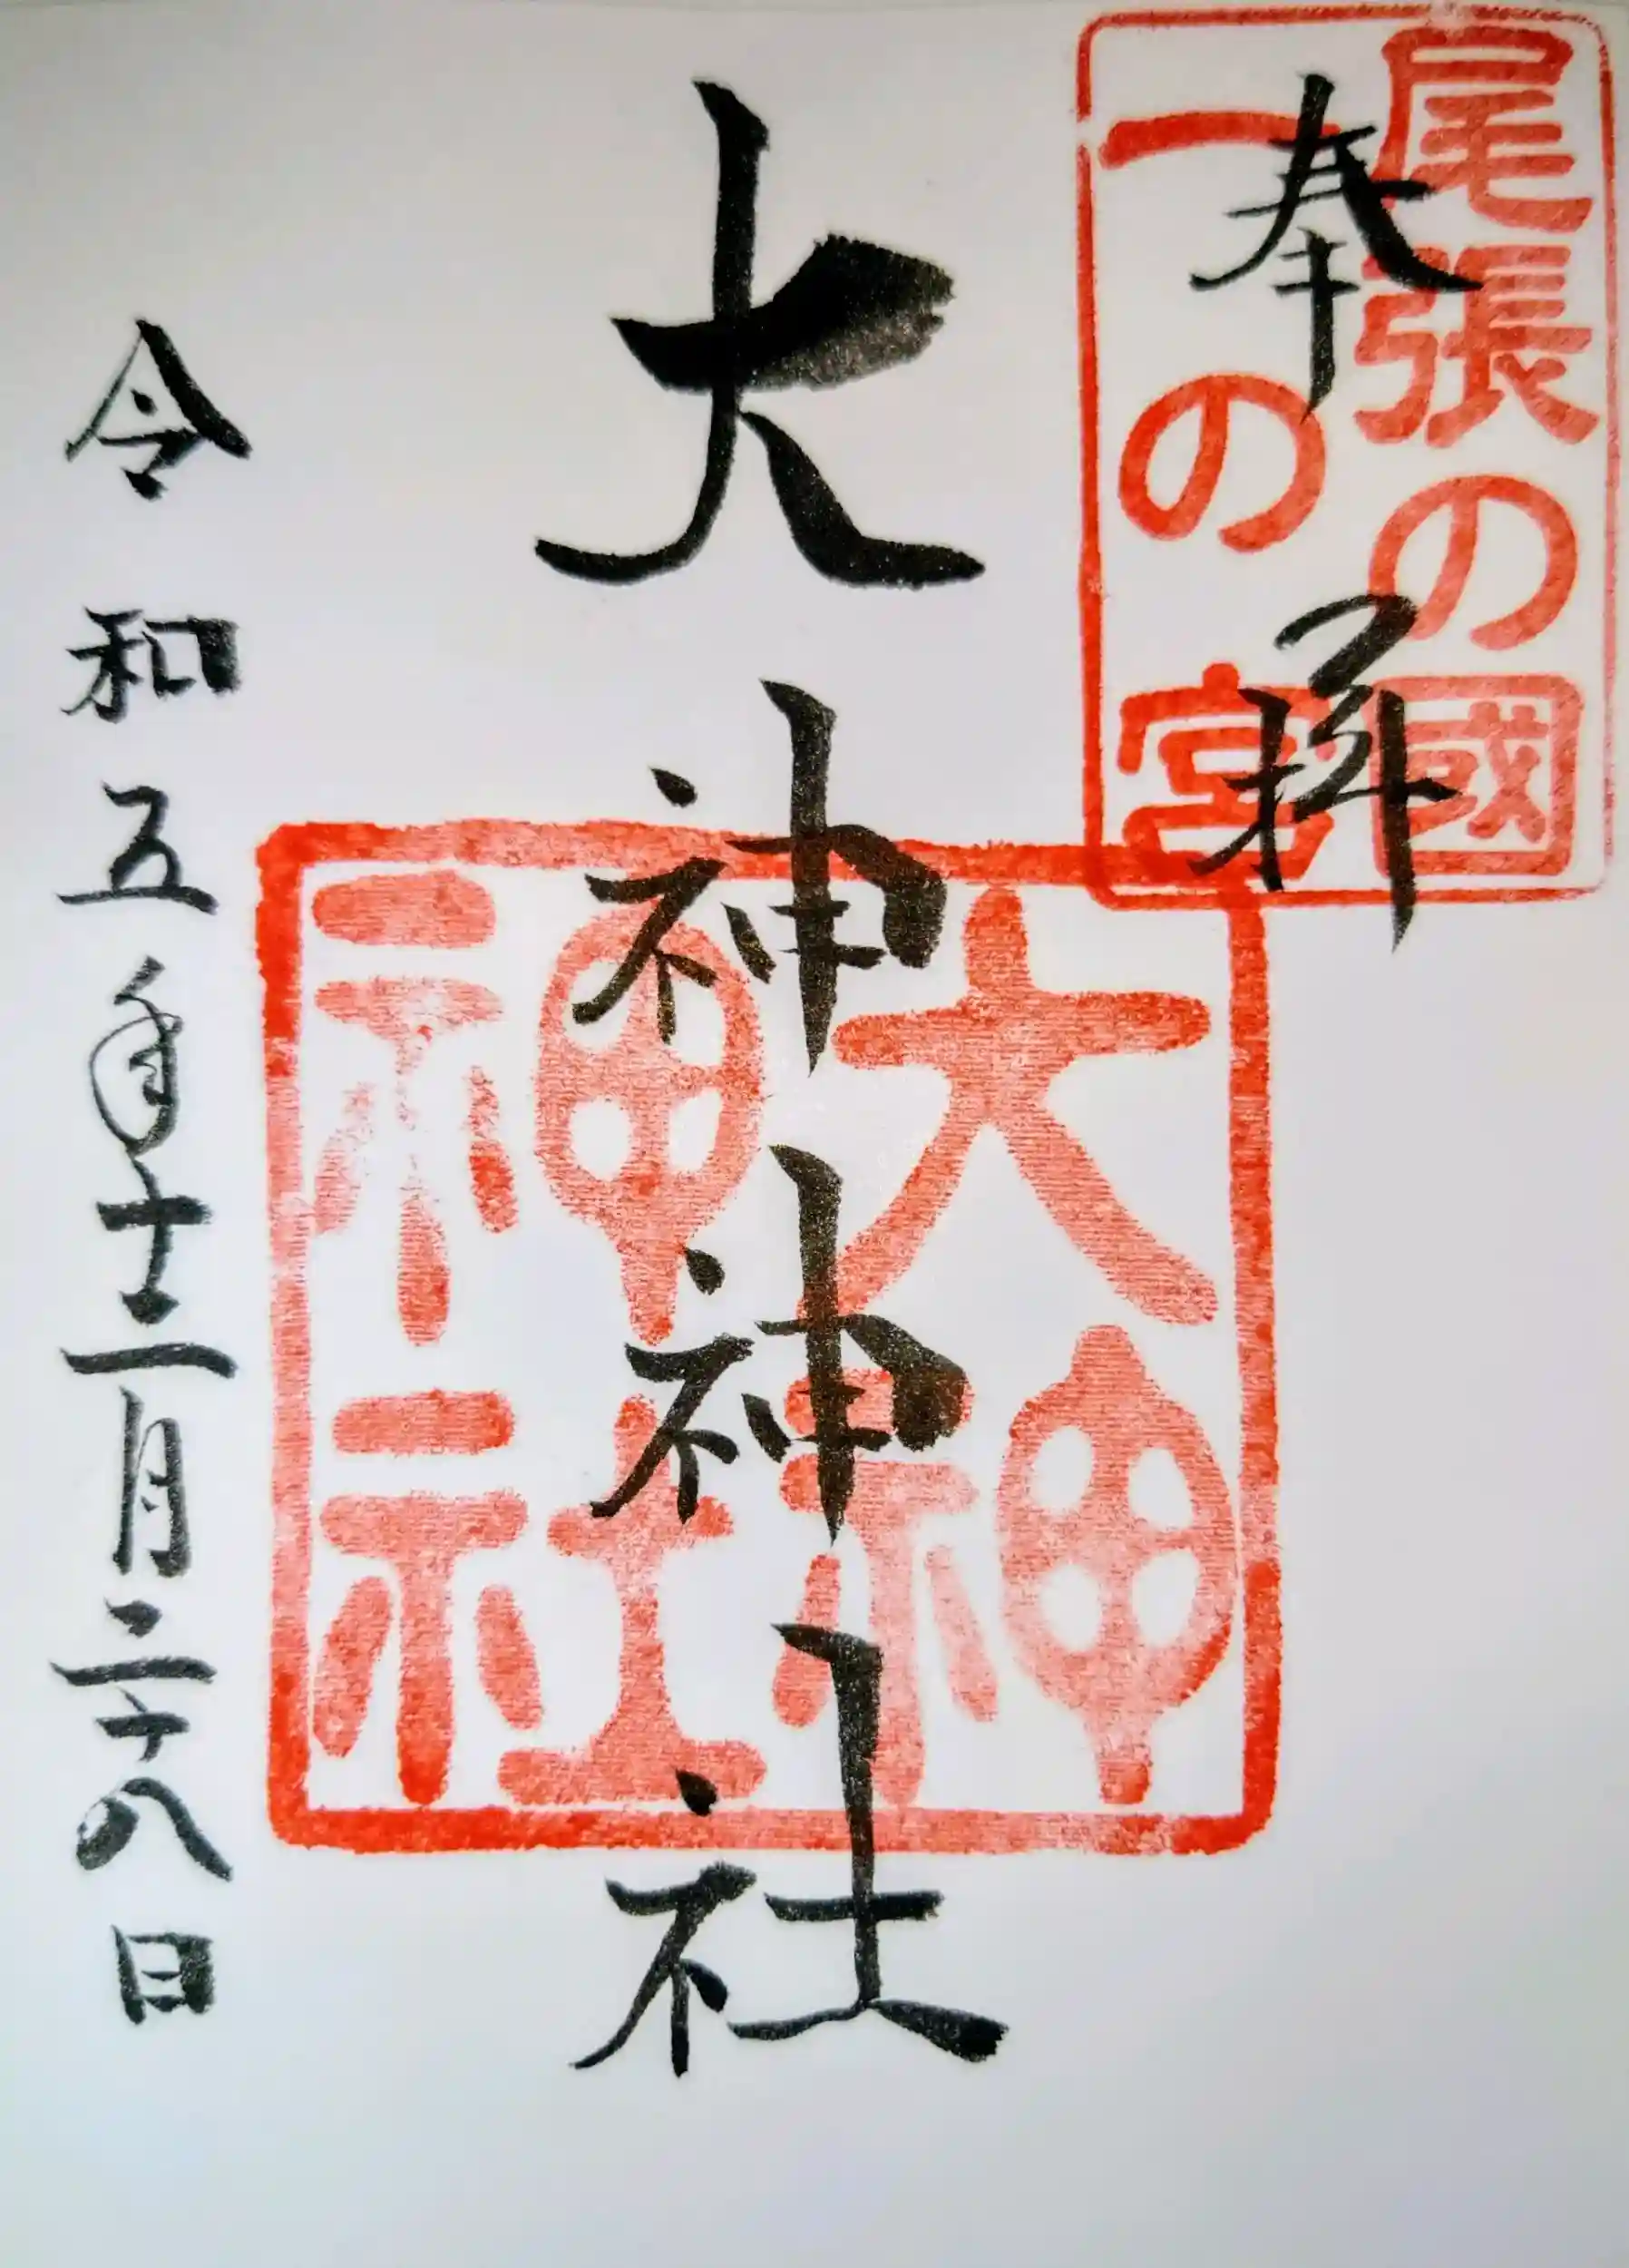 奉拝
尾張の國
一の宮
大神神社
大神
神社
令和五年十二月二十八日